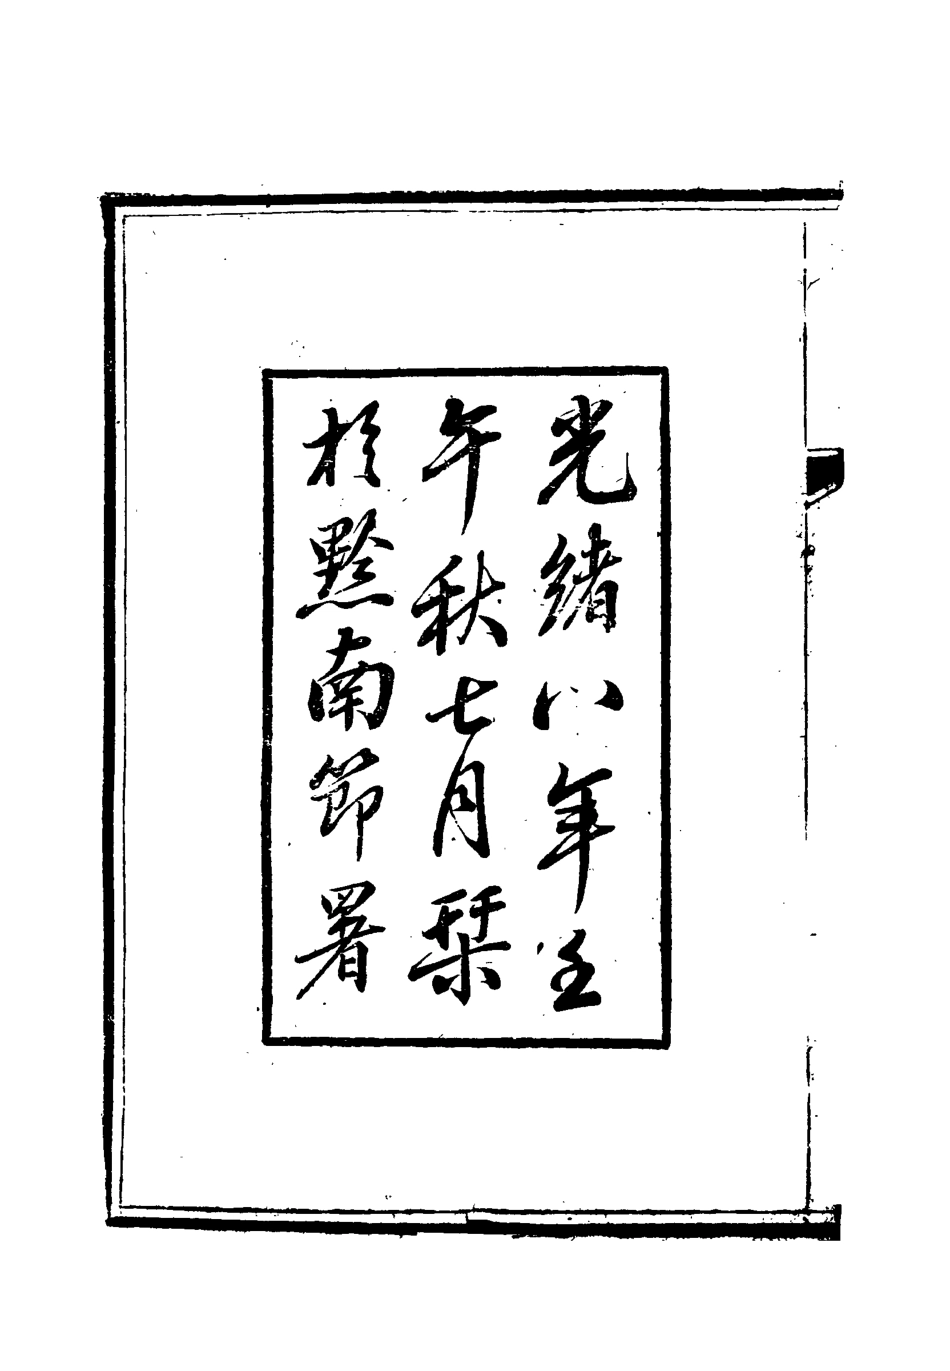 光緒八年壬
午秋七月栞
於黔南節署